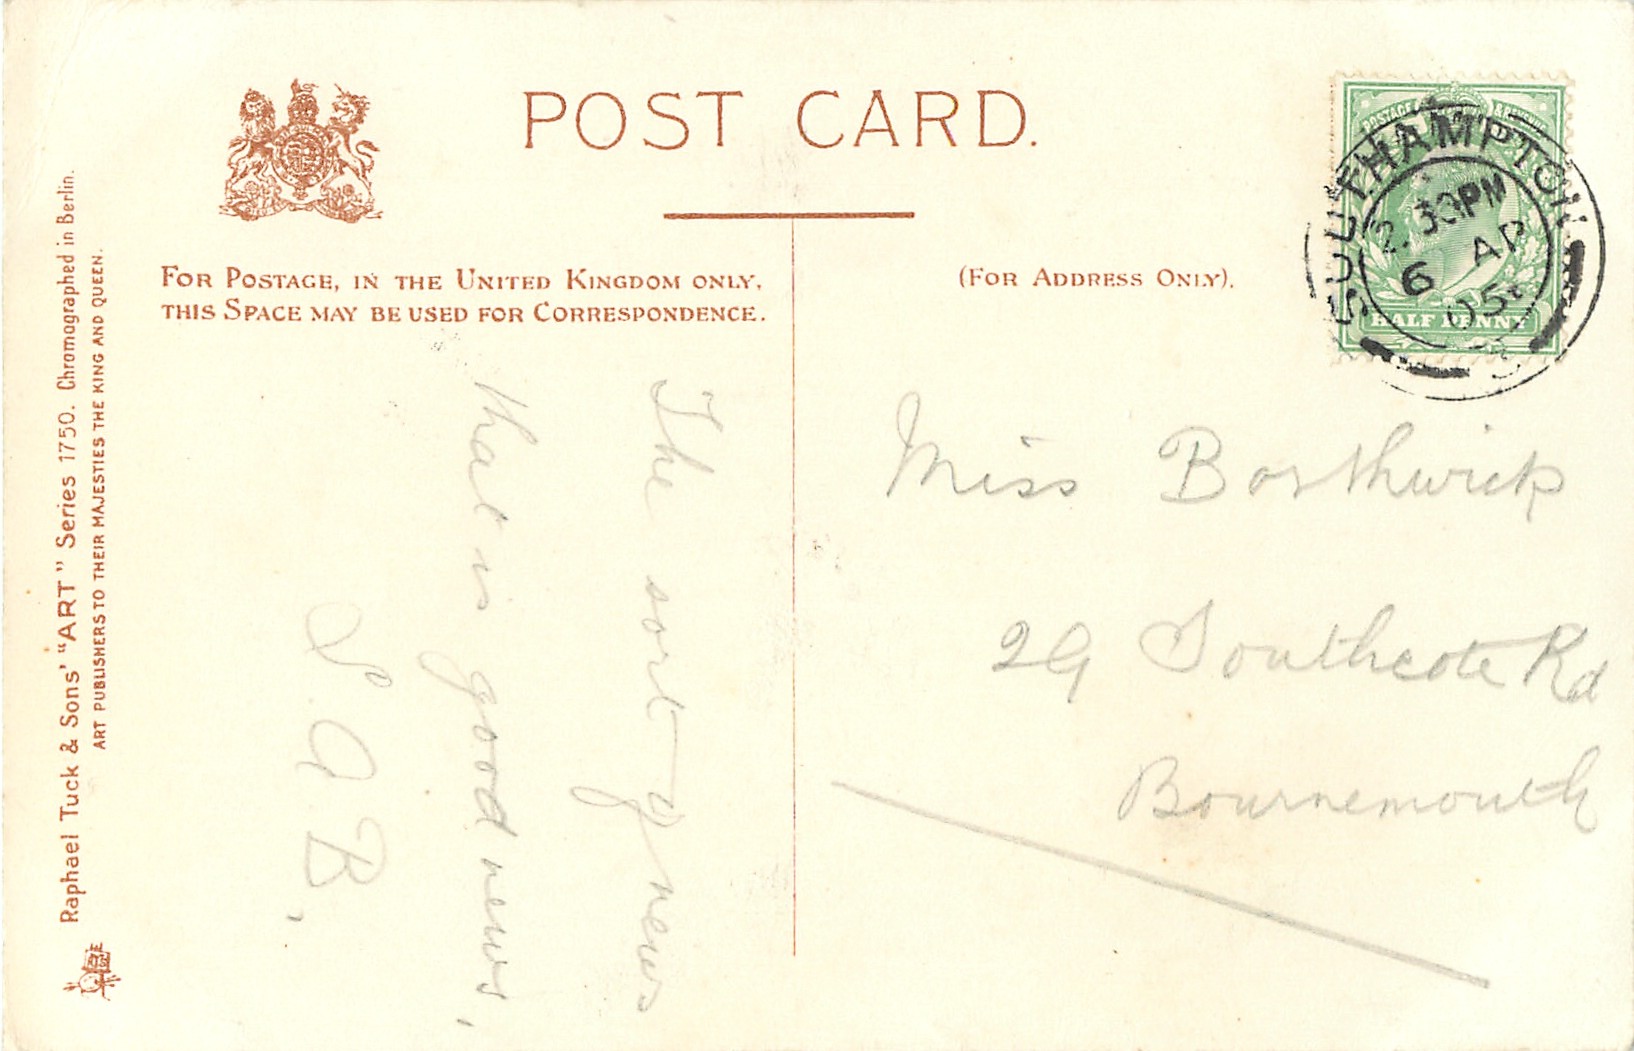 POST CARD.
FOR POSTAGE, IN THE UNITED KINGDOM ONLY,
THIS SPACE MAY BE USED FOR CORRESPONDENCE.
(FOR ADDRESS ONLY).
POSTAGE & REVENUE
HALF PENNY
SOUTHAMPTON
2.30PM
6 AP
05
The sort of news
that is good news,
S. A B.
Miss Borthwick
29 Southcote Rd
Bournemouth
Raphael Tuck & Sons' "ART" Series 1750. Chromographed in Berlin.
ART PUBLISHERS TO THEIR MAJESTIES THE KING AND QUEEN.